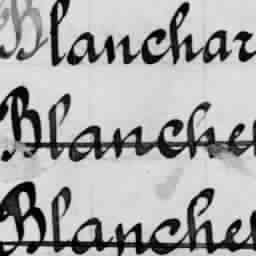 Blanchar
Blanche
Blanche